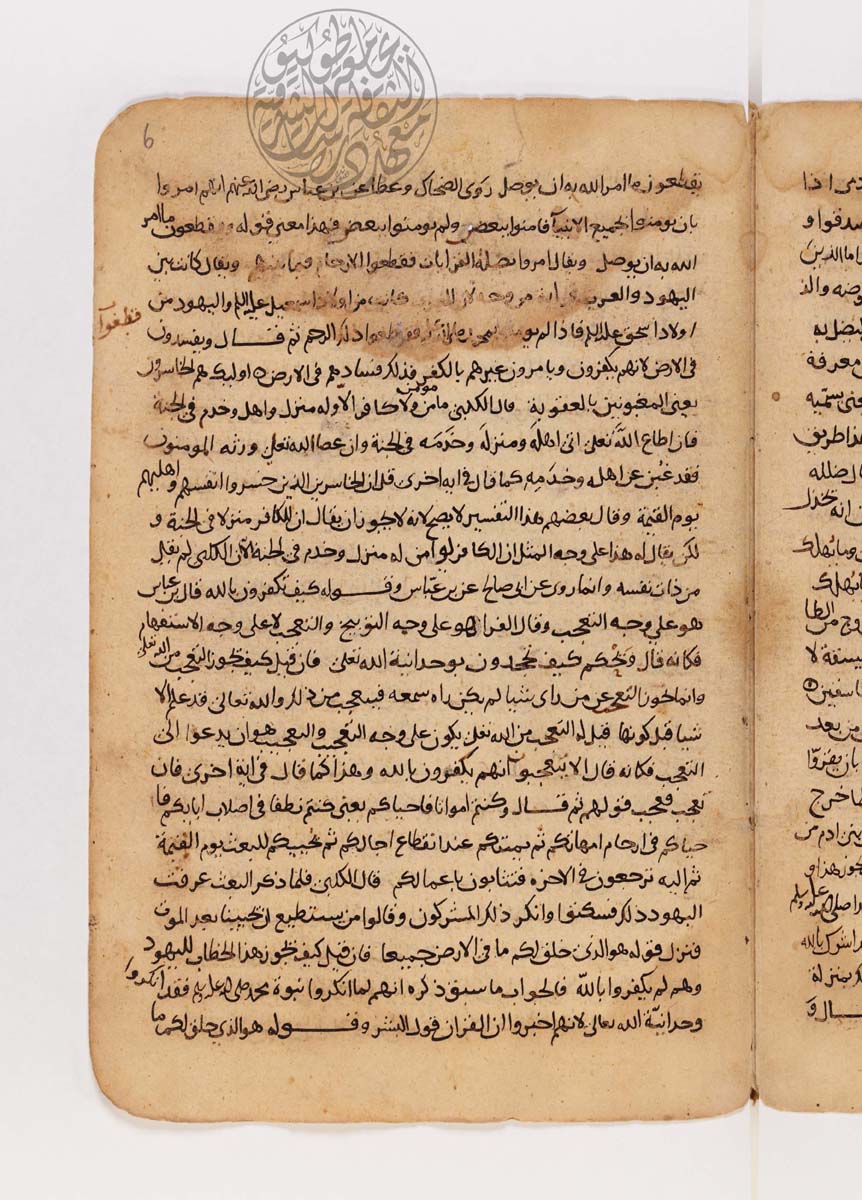 6
يقطعون ما امر الله به ان يوصل روى الضحاك وعطا عن بن عباس رضى الله عنهم انهم امروا
بان يومنوا بجميع الانبيآ فامنوا ببعض ولم يومنوا ببعض فهذا معنى قوله ويقطعون ما امر
الله به ان يوصل ويقال امروا بصلة القرابات فقطعوا الارحام فيما بينهم ويقال كانت بين
اليهود والعرب قرابة من وجه لان العرب كانت من اولاد اسمعيل عليه السلم واليهود من
اولاد اسحق عليه السلم فاذا لم يومنوا فقد قطعوا ذلك الرحم ثم قال ويفسدون
فقطعوا
فى الارض لانهم يكفرون ويامرون غيرهم بالكفر فذلك فسادهم فى الارض اوليك هم الخاسرون
يعنى المغبونين بالعقوبة قال الكلبى ما من مومن ولا كافر الا وله منزل واهل وخدم فى الجنة
فان اطاع اللّه تعلى اتى اهلَه ومنزلَه وخَدَمَه فى الجنة وان عصا الله تعلى ورثه المومنون
فقد غُبِن عن اهله وخدمِه كما قال فى ايه اخرى قل ان الخاسرين الذين خسروا انفسهم واهليهم
يوم القيمة وقال بعضهم هذا التفسير لا يصح لانه لا يجوز ان يقال ان للكافر منزلا فى الجنة و
لكن يقال له هذا على وجه المثل ان الكافر لو امن له منزل وخدم فى الجنة الا ان الكلبى لم يقل
من ذات نفسه وانما روى عن ابى صالح عن بن عبّاس وقوله كيف تكفرون بالله قال بن عباس
هو على وجه التعجب وقال الفرا هو على وجه التوبيخ والتعجب لا على وجه الاستفهام
فكانه قال ويْحكم كيف تجحدون بوحدانية الله تعلى فان قيل كيف يجوز التعجب من الله تعلى
وانما يكون التعجب من راى شيا لم يكن راه سمعه فيتعجب من ذلك والله تعالى قد علم الا
شيا قبل كونها قيل له التعجب من الله تعلى يكون على وجه التعجيب والتعجيب هو ان يدعوا الى
التعجب فكانه قال الا تتعجبون انهم يكفرون بالله وهذا كما قال فى اية اخرى فان
تعجب فعجب قولهم ثم قال وكنتم امواتا فاحياكم يعنى كنتم نطفا فى اصلاب ابايكم فا
حياكم فى ارحام امهاتكم ثم يميتكم عند انقطاع اجالكم ثم يحييكم للبعث يوم القيمة
ثم اليه ترجعون فى الاخره فتثابون باعمالكم قال الكلبى فلما ذكر البعث عرفت
اليهود ذلك فسكتوا وانكر ذلك المشركون وقالوا من يستطيع ان يحيينا بعد الموت
فنزل قوله هو الذى خلق لكم ما فى الارض جميعا فان قيل كيف يجوز هذا الخطاب لليهود
وهم لم يكفروا باللّه فالجواب ما سبق ذكره انهم لما انكروا نبوة محمد صلى الله عليه وسلم فقد انكروا
وحدانيّة الله تعالى لانهم اخبروا ان القران قول البشر وقوله هو الذى خلق لكم ما